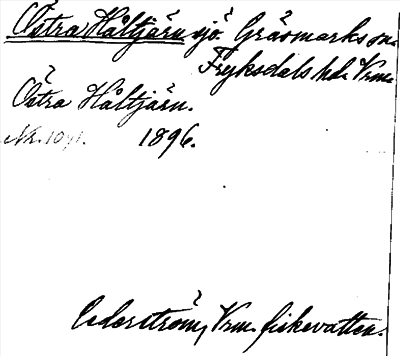 Östra Håltjärn sjö Gräsmarks sn.
Fryksdals hd. Vrm.
Östra Håltjärn.
1896.
Cederström, Vrm. fiskevatten.